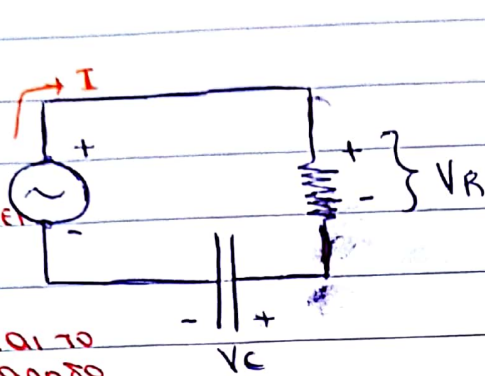 I
+
+
VR
-
-
- +
VC